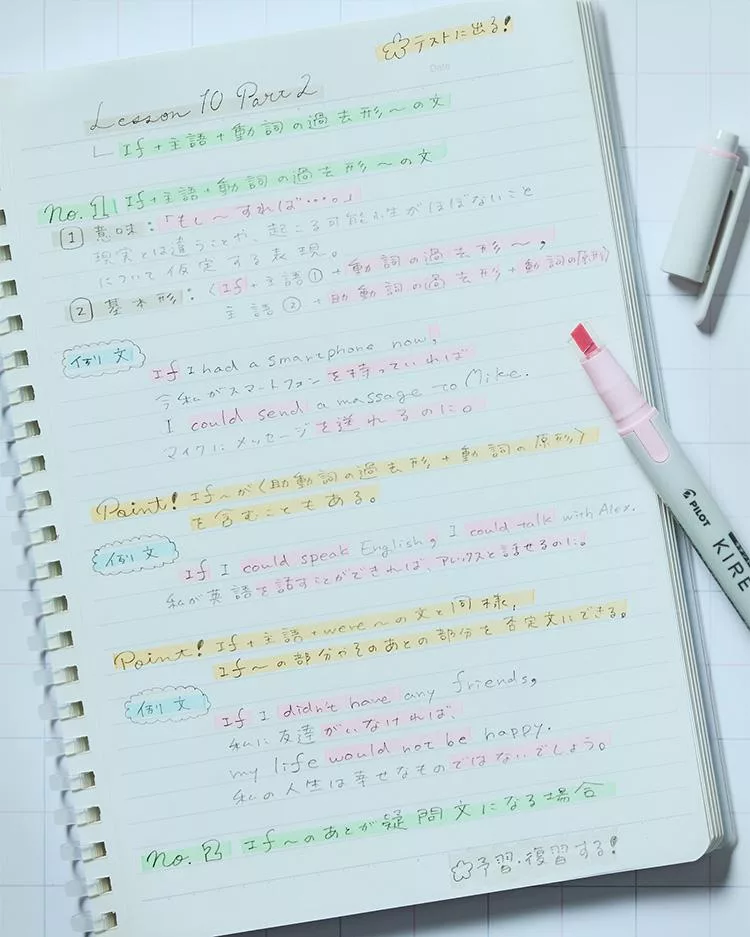 ✿テストに出る!
Date
Lesson 10 Part 2
└ If+主語+動詞の過去形〜の文
No.1 If+主語+動詞の過去形〜の文
1 意味:「もし〜すれば…。」
現実とは違うことや、起こる可能性がほぼないこと
について仮定する表現。
2 基本形:〈If+主語①+動詞の過去形〜,
主語②+助動詞の過去形+動詞の原形〉
例文
If I had a smartphone now,
今私がスマートフォンを持っていれば
I could send a massage to Mike.
マイクにメッセージを送れるのに。
Point! If〜が〈助動詞の過去形+動詞の原形〉
を含むこともある。
例文
If I could speak English, I could talk with Alex.
私が英語を話すことができれば、アレックスと話せるのに。
Point! If+主語+were〜の文と同様,
If〜の部分やそのあとの部分を否定文にできる。
例文
If I didn't have any friends,
私に友達がいなければ、
my life would not be happy.
私の人生は幸せなものではないでしょう。
No.2 If〜のあとが疑問文になる場合
✿予習・復習する!
PILOT
KIRE